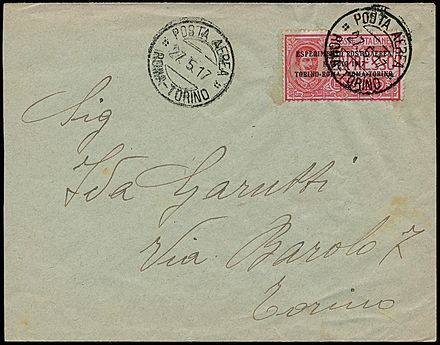 * POSTA AEREA *
27.5.17
ROMA-TORINO
* POSTA AEREA *
ROMA-TORINO
ESPERIMENTO POSTA AEREA
MAGGIO 1917
TORINO-ROMA · ROMA-TORINO
Sig
Ida Garutti
Via Barolo 7
Torino